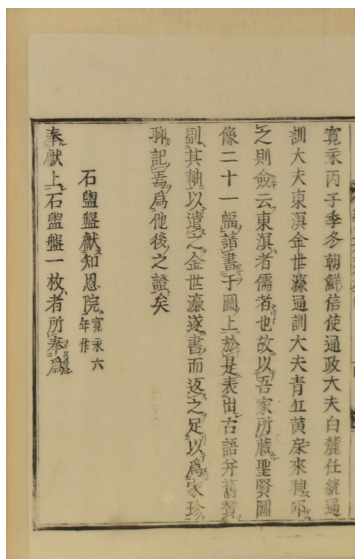 寛永丙子季冬朝鮮信使通政大夫白麓任絖通
訓大夫東溟金世濂通訓大夫青丘黄㦿來聘叩
之則僉云東溟者儒者也故以吾家所蔵聖賢圖
像二十一幅請書于圖上於是表出古語并舊賛
副其軸以遣之金世濂遂書而返之足以為家珍
聊記焉為他後之證矣
石盥盤獻知恩院寛永六年作
奉獻上石盥盤一枚者所奉為